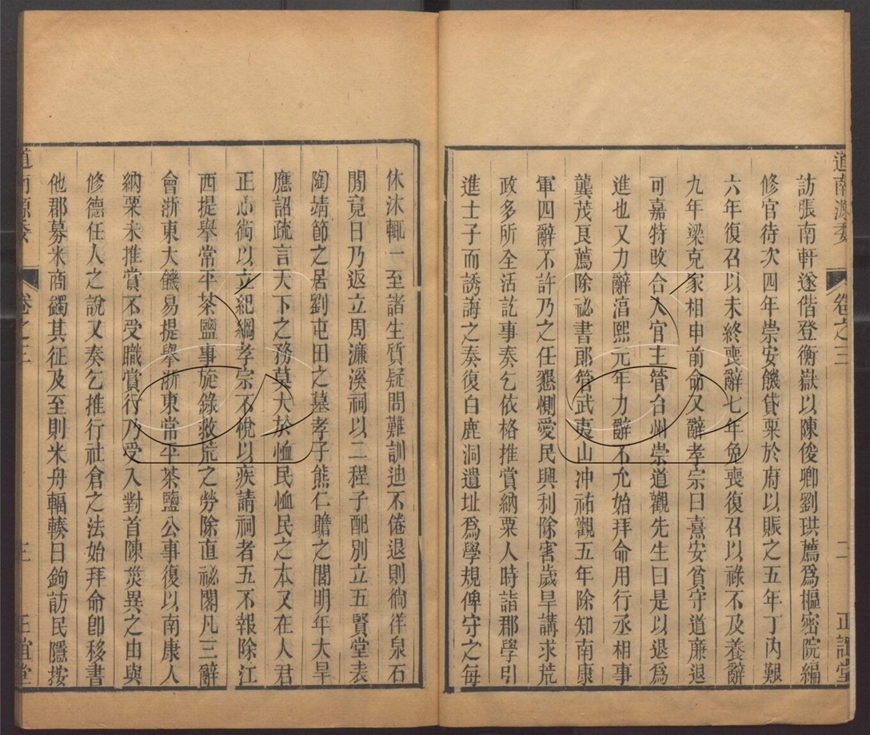 道南源委 卷之三 二 正誼堂
訪張南軒遂偕登衡嶽以陳俊卿劉珙薦爲樞密院編
修官待次四年崇安饑貸粟於府以賑之五年丁內艱
六年復召以未終喪辭七年免喪復召以祿不及養辭
九年梁克家相申前命又辭孝宗曰熹安貧守道廉退
可嘉特改合入官主管台州崇道觀先生曰是以退爲
進也又力辭淳熙元年力辭不允始拜命用行丞相事
龔茂良薦除祕書郎管武夷山冲祐觀五年除知南康
軍四辭不許乃之任懇惻愛民興利除害歲旱講求荒
政多所全活訖事奏乞依格推賞納粟人時詣郡學引
進士子而誘誨之奏復白鹿洞遺址爲學規俾守之每
休沐輒一至諸生質疑問難訓迪不倦退則徜徉泉石
閒竟日乃返立周濂溪祠以二程子配別立五賢堂表
陶靖節之居劉屯田之墓孝子熊仁贍之閭明年大旱
應詔疏言天下之務莫大於恤民恤民之本又在人君
正心術以立紀綱孝宗不悅以疾請祠者五不報除江
西提舉常平茶鹽事旋錄救荒之勞除直祕閣凡三辭
會浙東大饑易提舉浙東常平茶鹽公事復以南康人
納粟未推賞不受職賞行乃受入對首陳災異之由與
修德任人之說又奏乞推行社倉之法始拜命卽移書
他郡募米商蠲其征及至則米舟輻輳日鉤訪民隱按
道南源委 卷之三 三 正誼堂